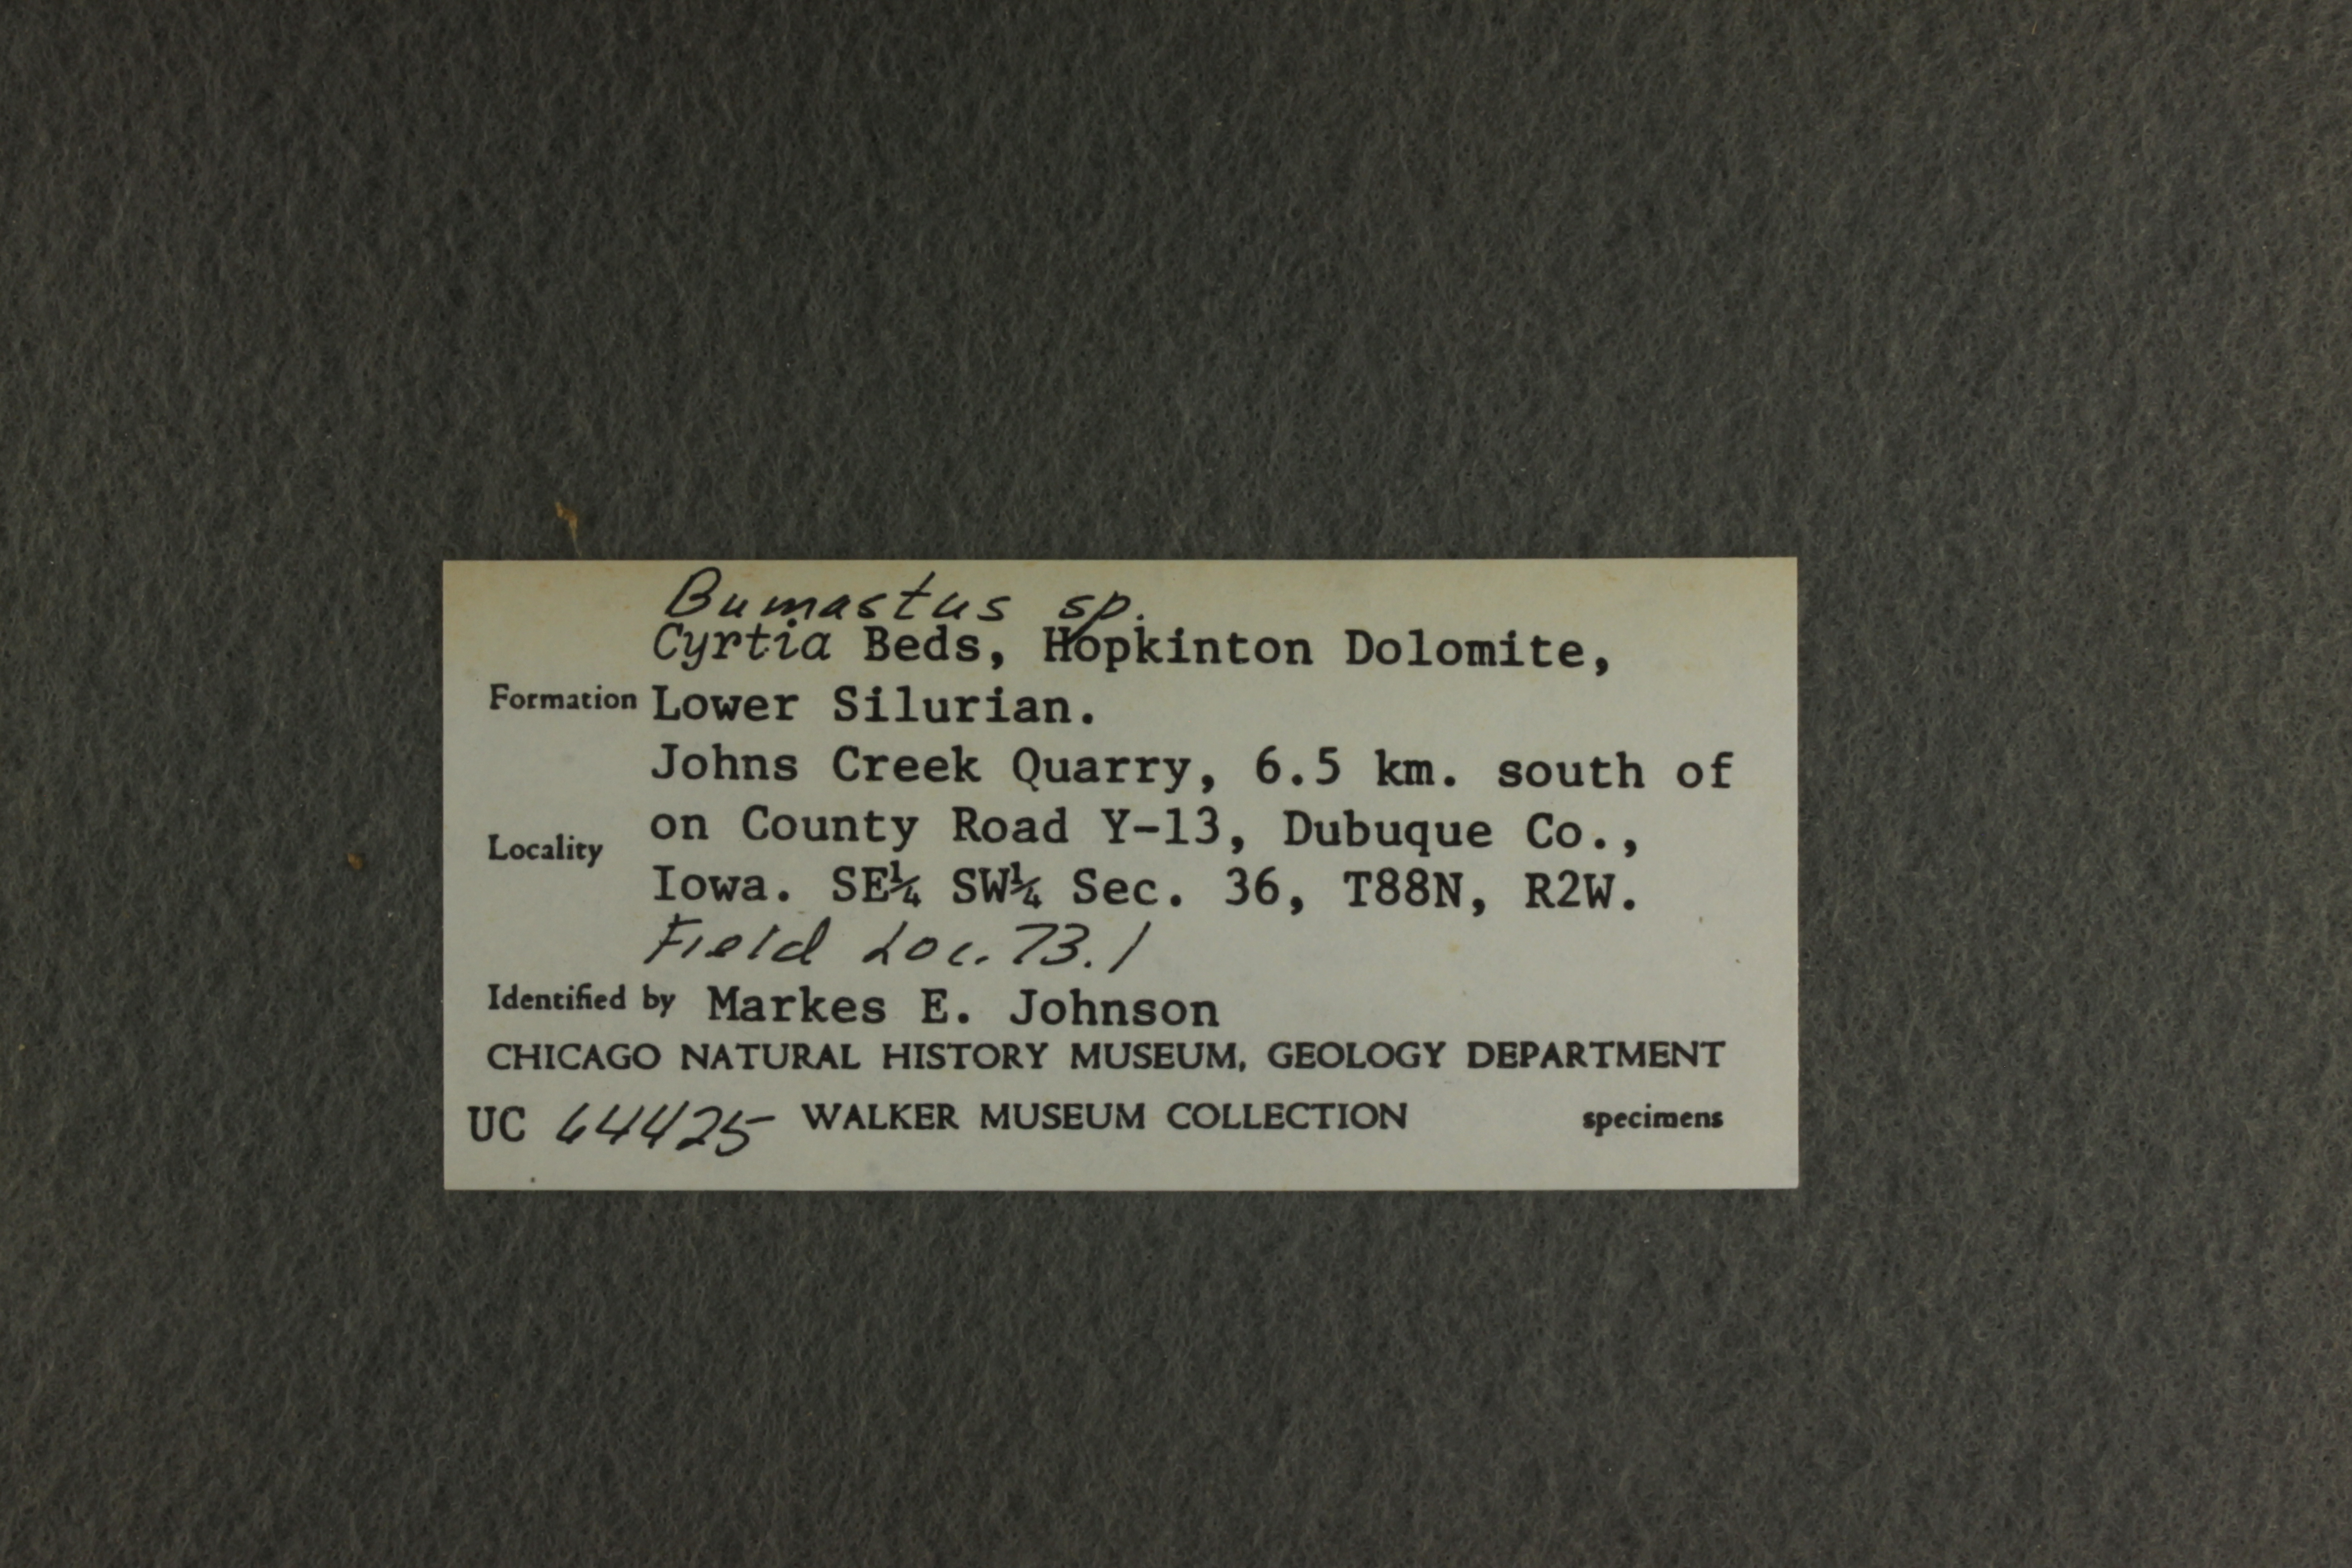 Bumastus sp.
Cyrtia Beds, Hopkinton Dolomite,
Formation Lower Silurian.
Johns Creek Quarry, 6.5 km. south of
Locality on County Road Y-13, Dubuque Co.,
Iowa. SE¼ SW¼ Sec. 36, T88N, R2W.
Field Loc. 73.1
Identified by Markes E. Johnson
CHICAGO NATURAL HISTORY MUSEUM, GEOLOGY DEPARTMENT
UC 64425 WALKER MUSEUM COLLECTION specimens